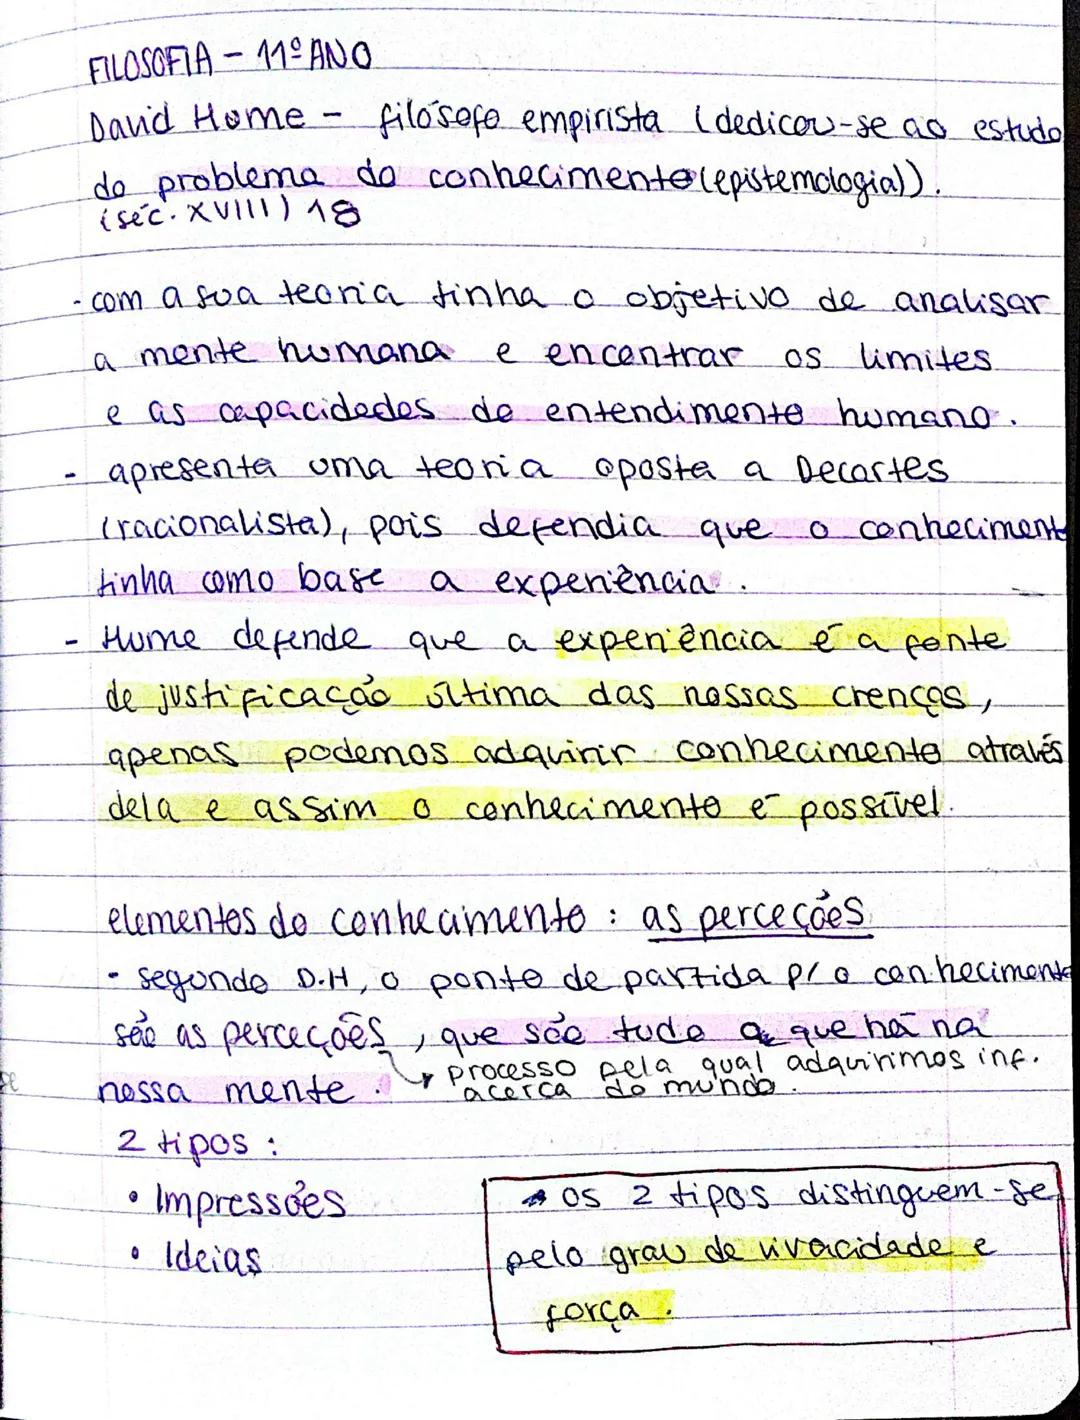 FILOSOFIA - 11º ANO
David Hume - filósofo empirista (dedicou-se ao estudo
do problema do conhecimento (epistemologia)).
(séc. XVIII) 18
- com a sua teoria tinha o objetivo de analisar
a mente humana e encontrar os limites
e as capacidades do entendimento humano.
- apresenta uma teoria oposta a Decartes
(racionalista), pois defendia que o conheciment
tinha como base a experiência.
- Hume defende que a experiência é a fonte
de justificação última das nossas crenças,
apenas podemos adquirir conhecimento através
dela e assim o conhecimento é possível.
elementos do conhecimento: as perceções
- segundo D.H, o ponto de partida p/ o conhecimento
são as perceções, que são tudo o que há na
nossa mente. ↳ processo pela qual adquirimos inf.
acerca do mundo.
2 tipos:
• Impressões
• Ideias
→ os 2 tipos distinguem-se
pelo grau de vivacidade e
força.